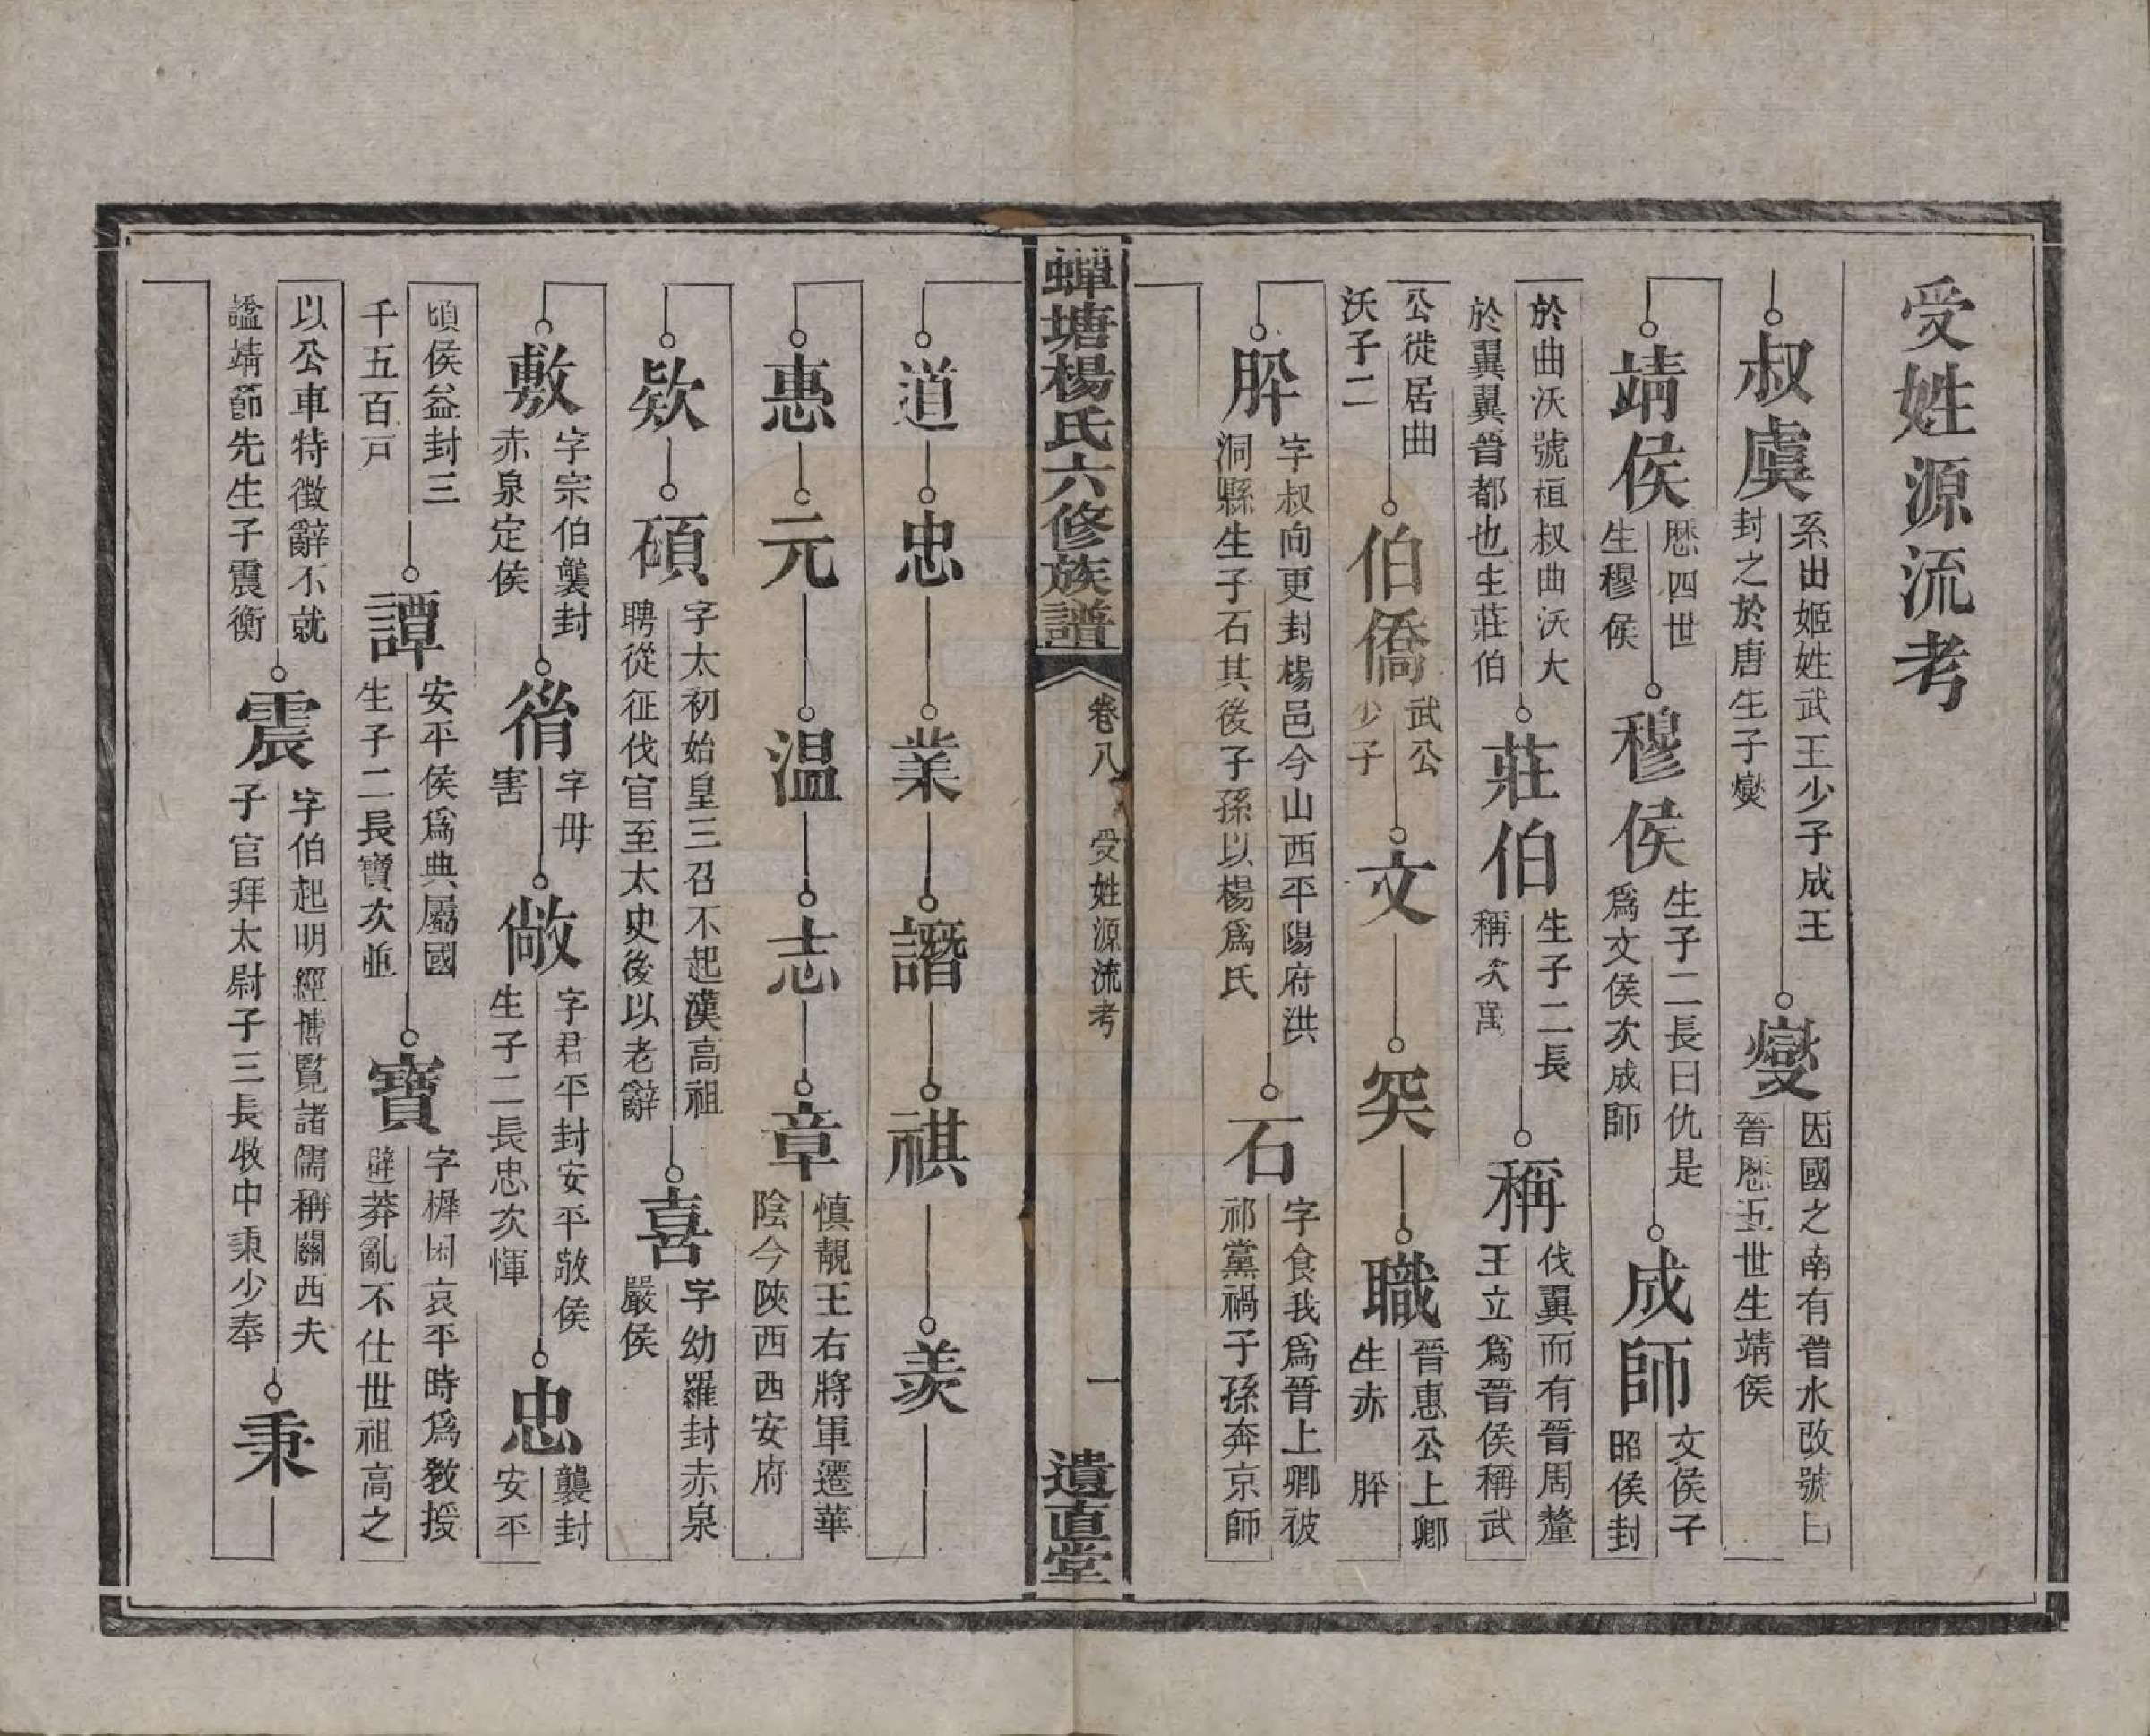 受姓源流考
叔虞
系出姬姓武王少子成王
封之於唐生子燮
燮
因國之南有晉水改號曰
晉歷五世生靖侯
靖侯
歷四世
生穆侯
穆侯
生子二長曰仇是
爲文侯次成師
成師
文侯子
昭侯封
於曲沃號桓叔曲沃大
於翼翼晉都也生莊伯
莊伯
生子二長
稱次萬
稱
伐翼而有晉周釐
王立爲晉侯稱武
公徙居曲
沃子二
伯僑
武公
少子
文
突
職
晉惠公上卿
生赤 肸
肸
字叔向更封楊邑今山西平陽府洪
洞縣生子石其後子孫以楊爲氏
石
字食我爲晉上卿彼
祁黨禍子孫奔京師
蟬塘楊氏六修族譜
卷八
受姓源流考
一
遺直堂
道
忠
業
譖
祺
羨
惠
元
温
志
章
慎靚王右將軍遷華
陰今陝西西安府
欵
碩
字太初始皇三召不起漢高祖
聘從征伐官至太史後以老辭
喜
字幼羅封赤泉
嚴侯
敷
字宗伯襲封
赤泉定侯
㣲
字毋
害
敞
字君平封安平敬侯
生子二長忠次惲
忠
襲封
安平
頃侯益封三
千五百戸
譚
安平侯爲典屬國
生子二長寶次並
寶
字樨因哀平時爲敎授
避莽亂不仕世祖高之
以公車特徵辭不就
謚靖節先生子震衡
震
字伯起明經博覧諸儒稱關西夫
子官拜太尉子三長牧中秉少奉
秉